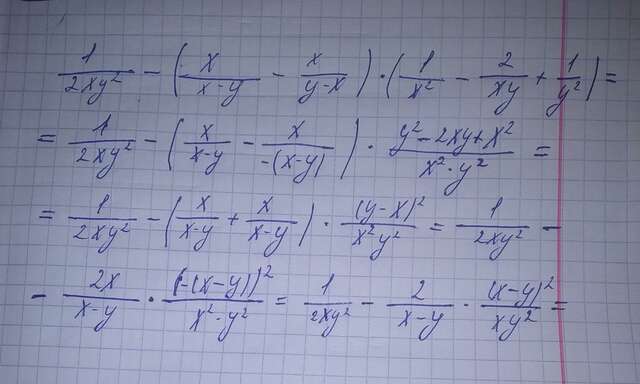 1/(2xy²) − (x/(x−y) − x/(y−x)) · (1/x² − 2/(xy) + 1/y²) =
= 1/(2xy²) − (x/(x−y) − x/(−(x−y))) · (y²−2xy+x²)/(x²·y²) =
= 1/(2xy²) − (x/(x−y) + x/(x−y)) · (y−x)²/(x²y²) = 1/(2xy²) −
− 2x/(x−y) · (−(x−y))²/(x²·y²) = 1/(2xy²) − 2/(x−y) · (x−y)²/(xy²) =